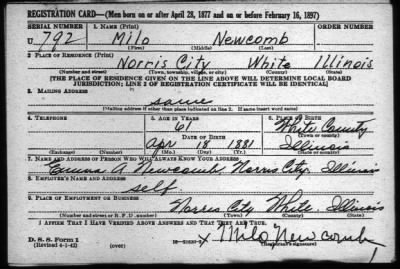 REGISTRATION CARD—(Men born on or after April 28, 1877 and on or before February 16, 1897)
SERIAL NUMBER 1. NAME (Print) ORDER NUMBER
U 792 Milo Newcomb
(First) (Middle) (Last)
2. PLACE OF RESIDENCE (Print)
Norris City White Illinois
(Number and street) (Town, township, village, or city) (County) (State)
[THE PLACE OF RESIDENCE GIVEN ON THE LINE ABOVE WILL DETERMINE LOCAL BOARD
JURISDICTION; LINE 2 OF REGISTRATION CERTIFICATE WILL BE IDENTICAL]
3. MAILING ADDRESS
same
[Mailing address if other than place indicated on line 2. If same insert word same]
4. TELEPHONE 5. AGE IN YEARS 6. PLACE OF BIRTH
61 White County
DATE OF BIRTH (Town or county)
Apr 18 1881 Illinois
(Exchange) (Number) (Mo.) (Day) (Yr.) (State or country)
7. NAME AND ADDRESS OF PERSON WHO WILL ALWAYS KNOW YOUR ADDRESS
Emma A Newcomb, Norris City, Illinois
8. EMPLOYER'S NAME AND ADDRESS
self
9. PLACE OF EMPLOYMENT OR BUSINESS
Norris City White Illinois
(Number and street or R. F. D. number) (Town) (County) (State)
I AFFIRM THAT I HAVE VERIFIED ABOVE ANSWERS AND THAT THEY ARE TRUE.
D. S. S. Form 1
(Revised 4-1-42) (over) x Milo Newcomb
(Registrant's signature)